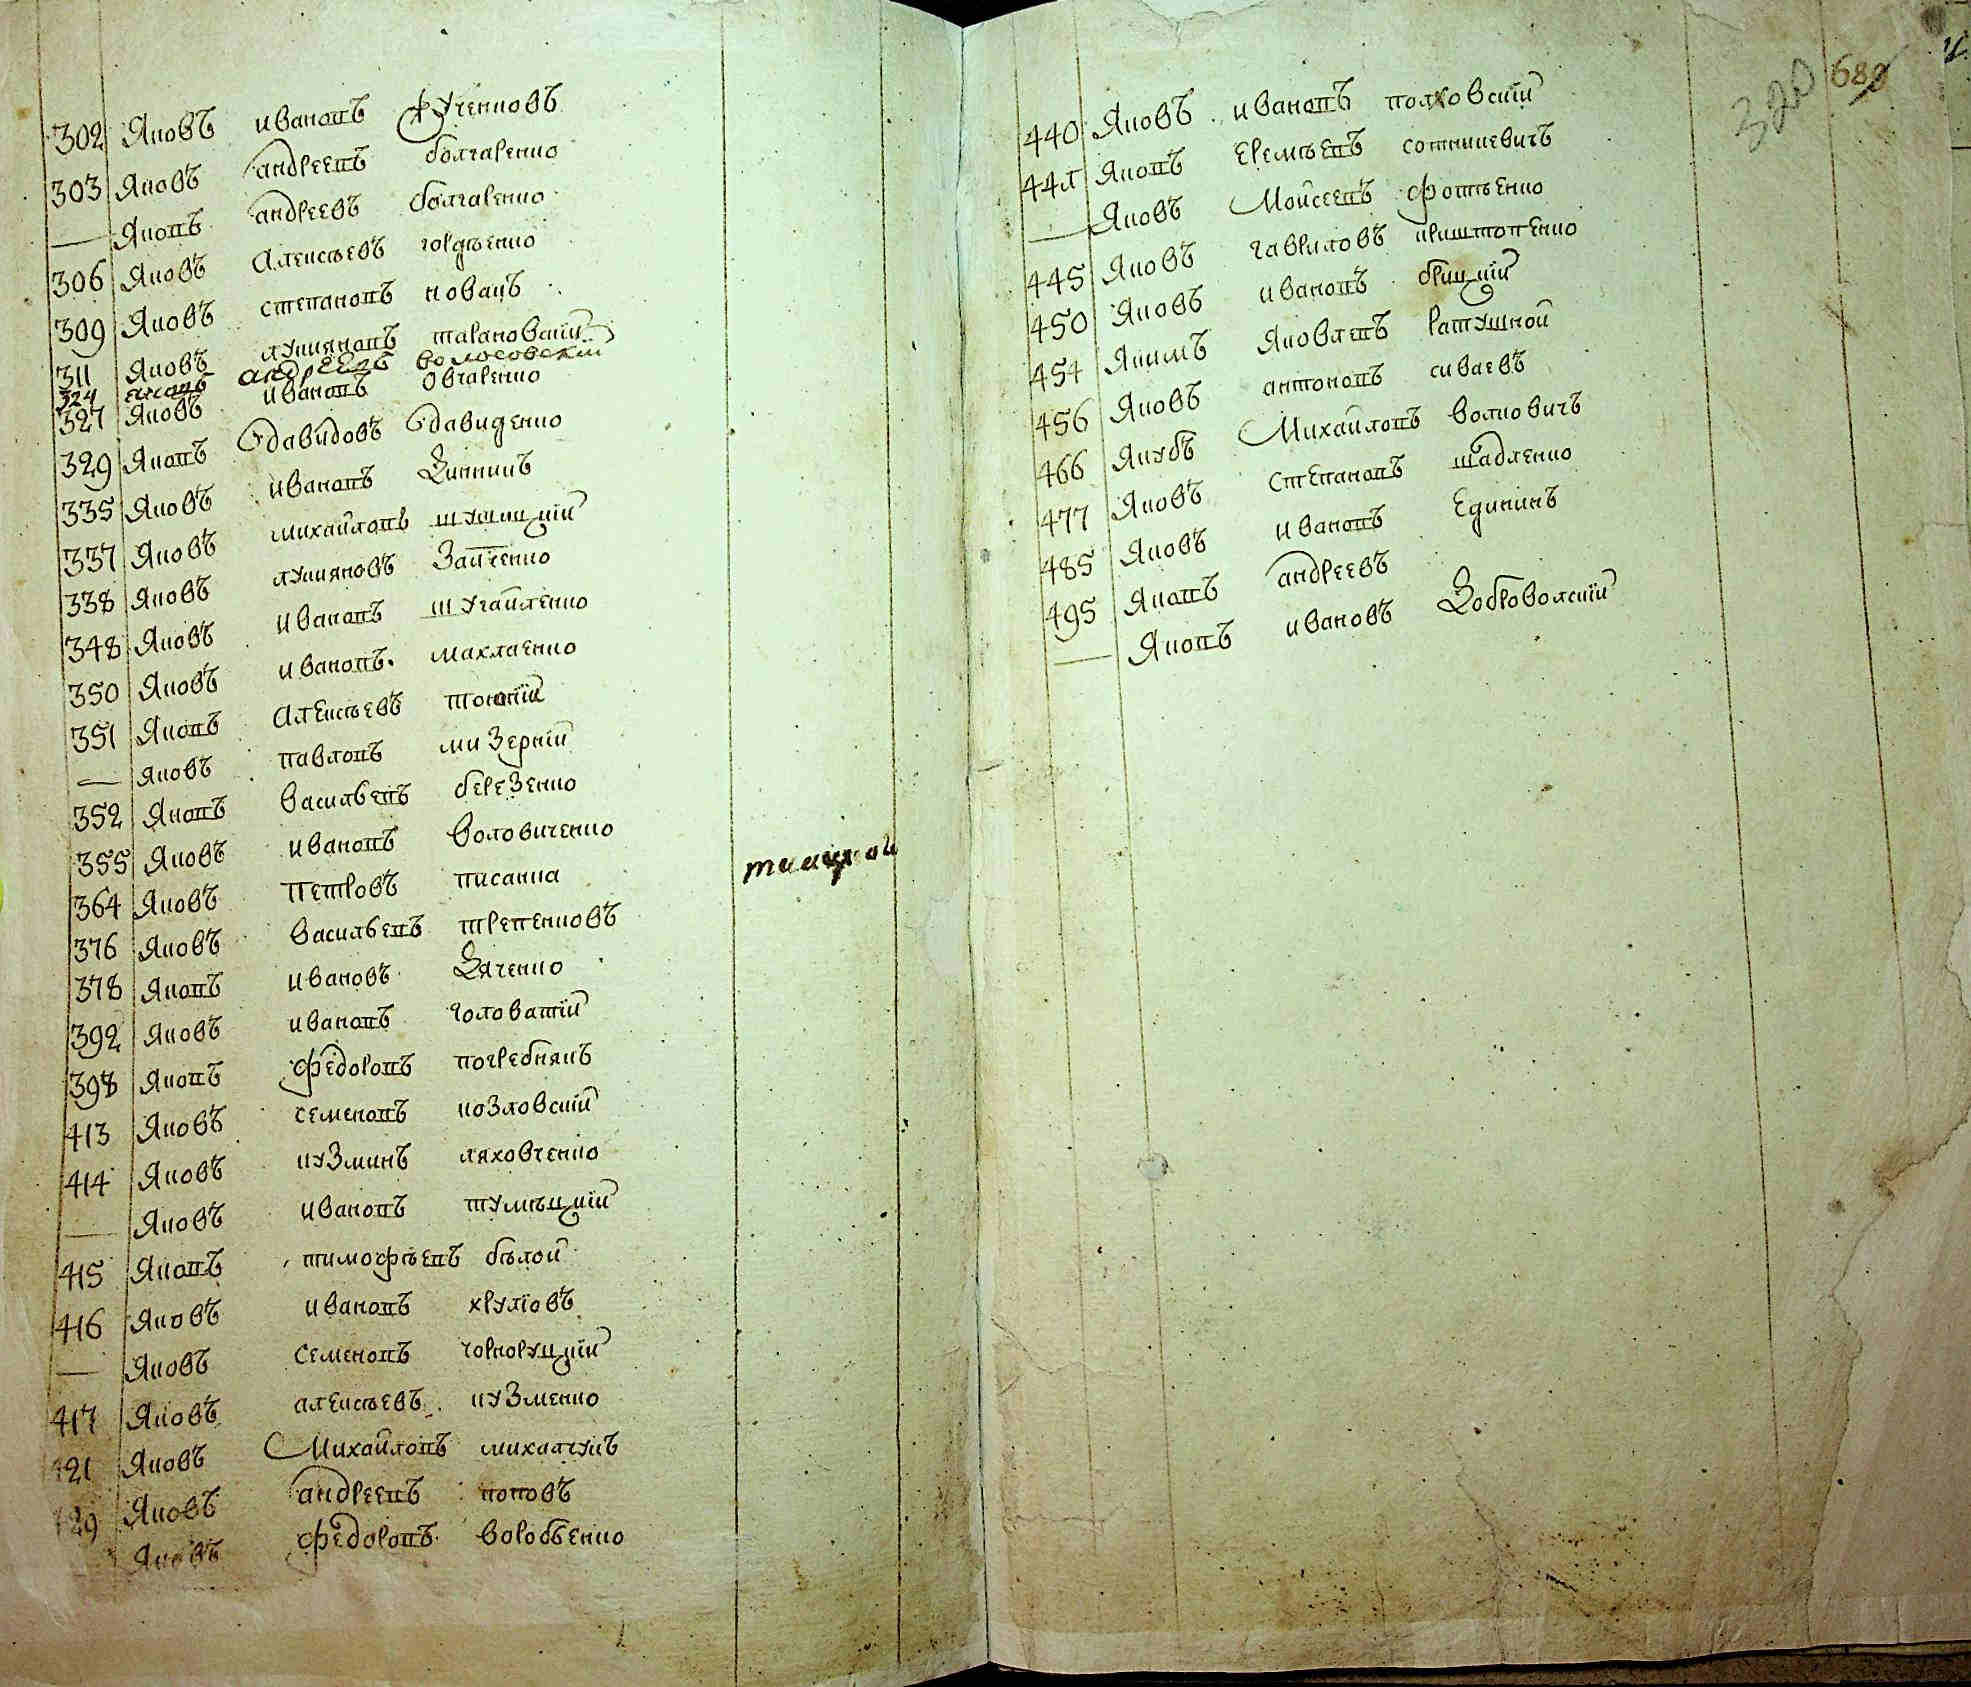 302 Яковъ Ивановъ Кученковъ
303 Яковъ андреевъ болгаренко
— Яковъ андреевъ болгаренко
306 Яковъ Алексѣевъ гордѣенко
309 Яковъ степановъ новакъ
311 Яковъ лукияновъ тарановский
324 Яковъ андреевъ волосовский
327 Яковъ ивановъ Овчаренко
329 Яковъ давидовъ давиденко
335 Яковъ ивановъ Винникъ
337 Яковъ михайловъ шушицкий
338 Яковъ лукияновъ Зайченко
348 Яковъ ивановъ шугайленко
350 Яковъ ивановъ махлаенко
351 Яковъ Алексѣевъ
— Яковъ павловъ мизерний
352 Яковъ васильевъ березенко
355 Яковъ ивановъ воловиченко
364 Яковъ петровъ писанка
376 Яковъ васильевъ трепенковъ
378 Яковъ ивановъ Дяченко
392 Яковъ ивановъ головатий
398 Яковъ федоровъ погребнякъ
413 Яковъ семеновъ козловский
414 Яковъ кузминъ ляховченко
— Яковъ ивановъ тумѣцкий
415 Яковъ тимофѣевъ бѣлой
416 Яковъ ивановъ хрулювъ
— Яковъ семеновъ чорноруцкий
417 Яковъ алексѣевъ кузменко
421 Яковъ Михайловъ михалчукъ
429 Яковъ андреевъ поповъ
Яковъ федоровъ воробьенко
320 689
440 Яковъ ивановъ полховский
441 Яковъ Еремѣевъ сотникевичъ
— Яковъ Моисеевъ фотѣенко
445 Яковъ гавриловъ криштопенко
450 Яковъ ивановъ брицкий
454 Якимъ Яковлевъ ратушной
456 Яковъ антоновъ сиваевъ
466 Якубъ Михайловъ волковичъ
477 Яковъ Степановъ шадленко
485 Яковъ ивановъ Единикъ
495 Яковъ андреевъ
— Яковъ ивановъ Добровольский